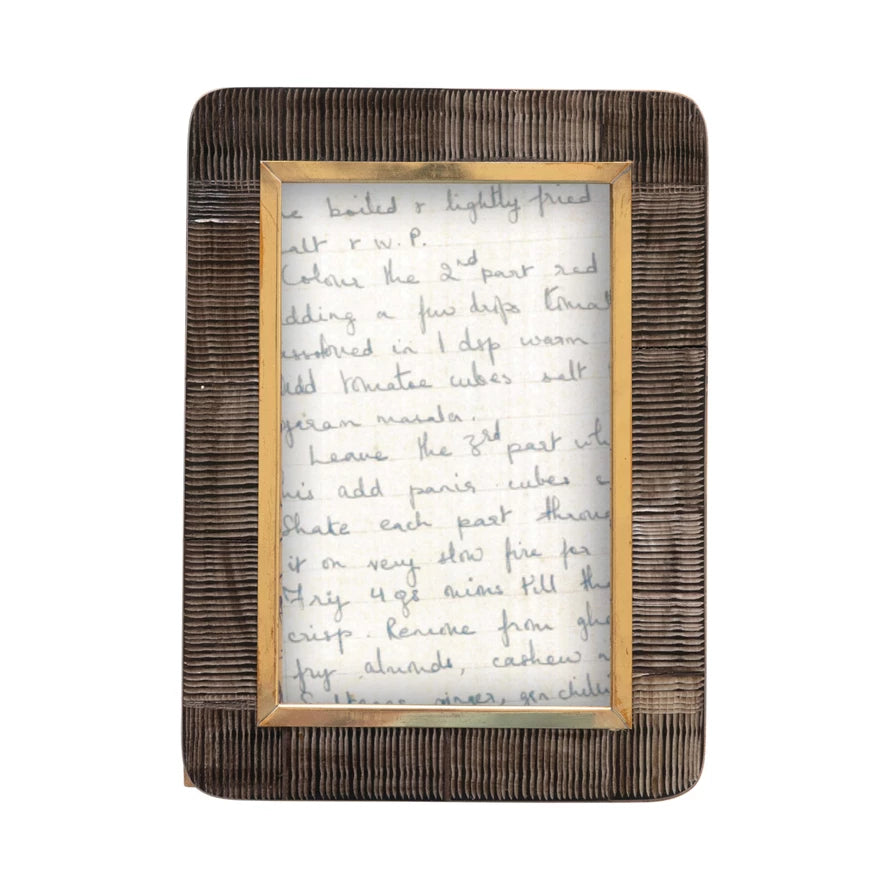 e boiled & lightly fried
alt & W.P.
Colour the 2nd part red
dding a few drps tomat
issolved in 1 dsp warm
Add tomatoe cubes salt
garam masala.
Leave the 3rd part wh
his add panir cubes
Shake each part throu
it on very slow fire for
Fry 4 gs onions till the
crisp. Remove from ghe
fry almonds, cashew n
Sultanas ginger, grn chilli